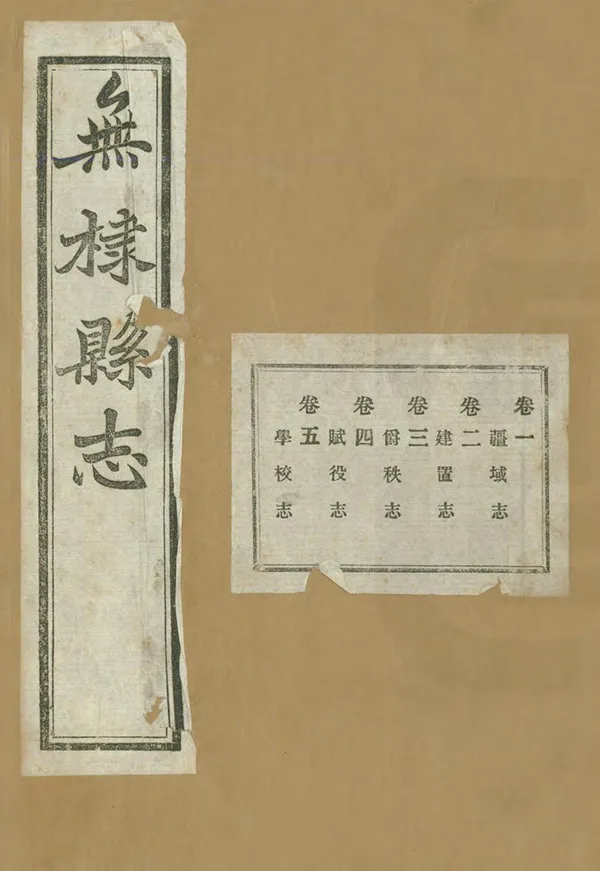 無棣縣志
卷一
疆域志
卷二
建置志
卷三
爵秩志
卷四
賦役志
卷五
學校志